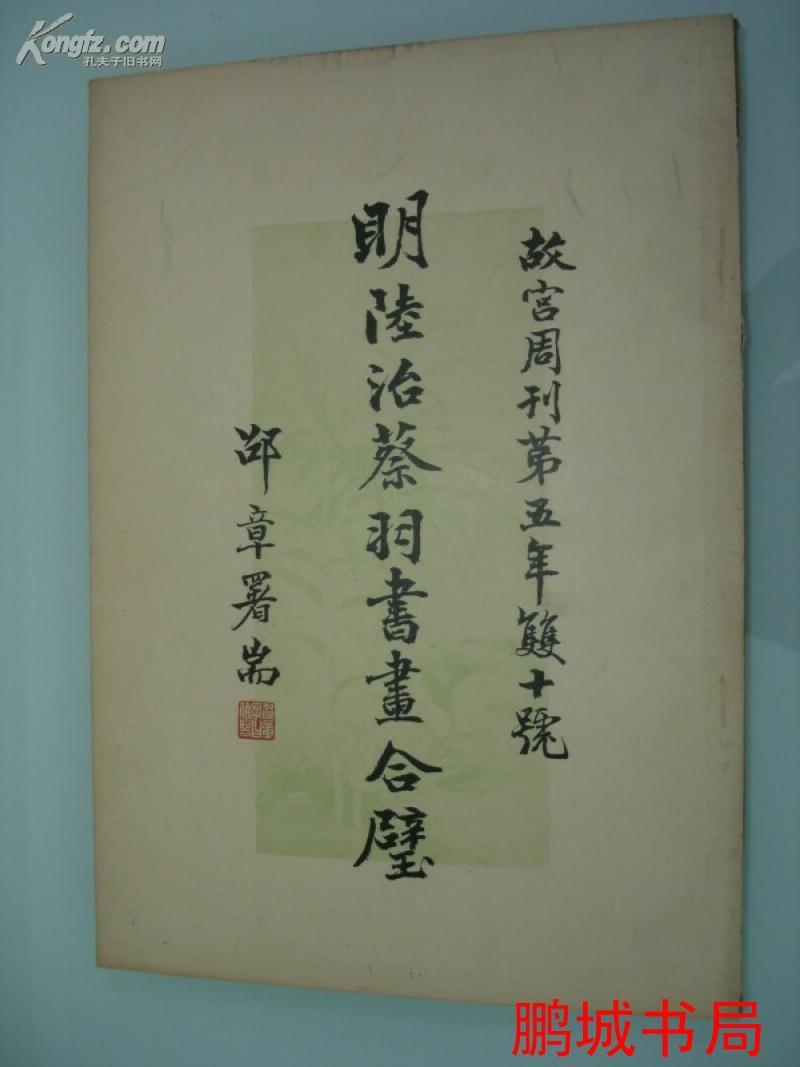 Kongfz.com
孔夫子旧书网
故宫周刊第五年雙十號
明陸治蔡羽書畫合璧
邵章署耑
鹏城书局